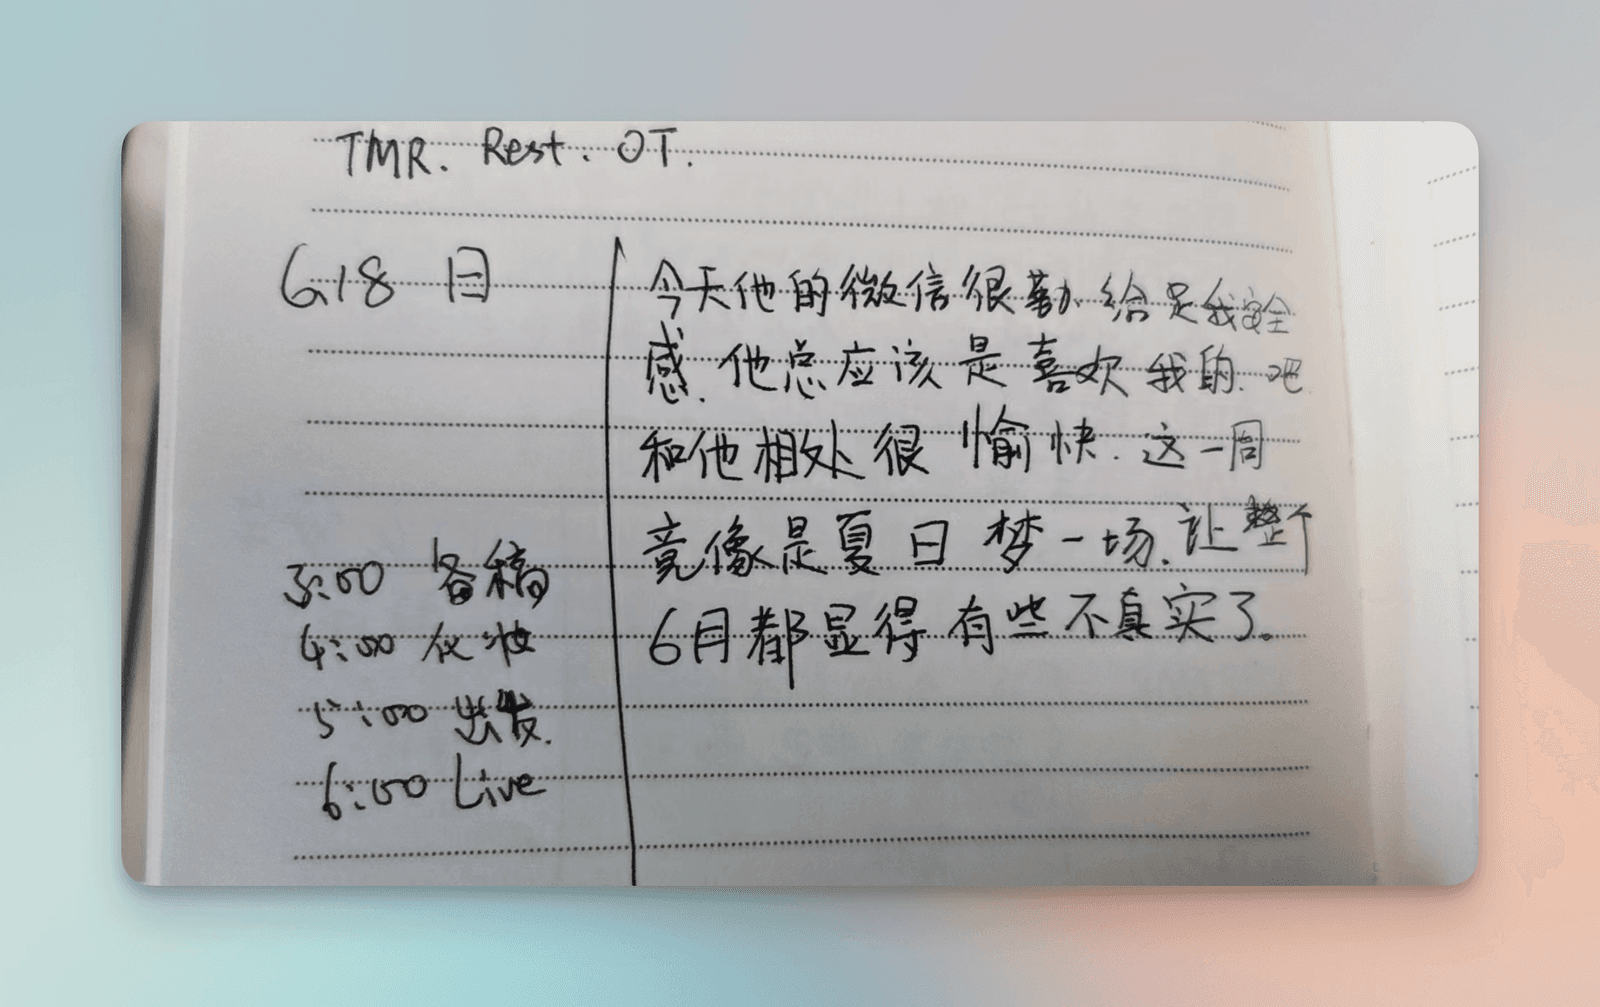 TMR. Rest. OT.
6.18 日
3:00 备稿
4:00 化妆
5:00 出发.
6:00 Live
今天他的微信很勤.给足我安全
感.他总应该是喜欢我的.吧
和他相处很愉快.这一周
竟像是夏日梦一场.让整个
6月都显得有些不真实了。